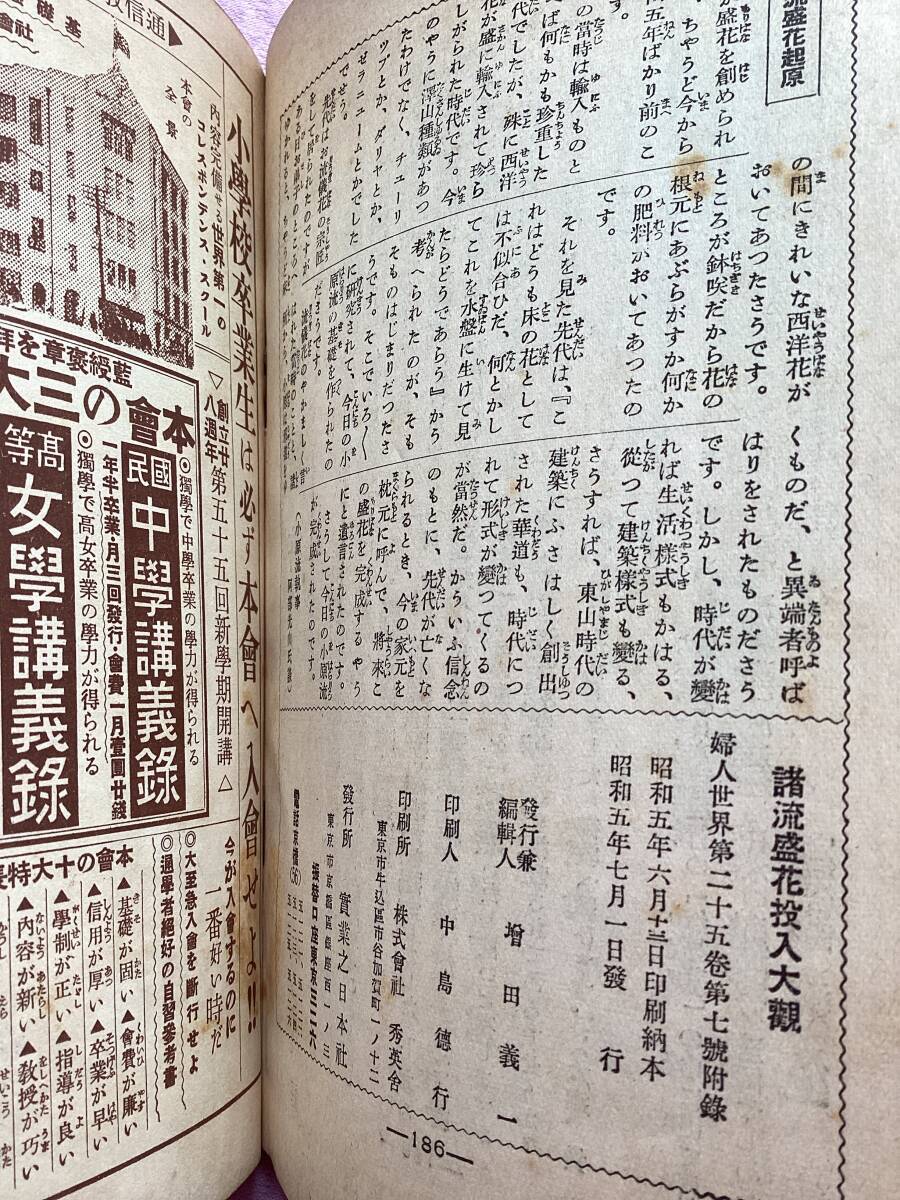 流盛花起原
盛花を創められ
、ちやうど今から
五年ばかり前のこ
す。
の當時は輸入ものと
ば何もかも珍重した
代でしたが、殊に西洋
花が盛に輸入されて珍ら
しがられた時代です。今
のやうに澤山種類があつ
たわけでなく、チューリ
ツプとか、ダリヤとか、
ゼラニュームとかでした
でせう。
の間にきれいな西洋花が
おいてあつたさうです。
ところが鉢咲だから花の
根元にあぶらがすか何か
の肥料がおいてあつたの
です。
それを見た先代は、『こ
れはどうも床の花として
は不似合ひだ、何とかし
てこれを水盤に生けて見
たらどうであらう』から
考へられたのが、そも
そものはじまりだつたさ
うです。そこでいろ〱
に研究されて、今日の小
原流の基礎を作られたの
ださうです。
くものだ、と異端者呼ば
はりをされたものださう
です。しかし、時代が變
れば生活樣式もかはる、
從つて建築樣式も變る、
さうすれば、東山時代の
建築にふさはしく創出
された華道も、時代につ
れて形式が變つてくるの
が當然だ。かういふ信念
のもとに、先代が亡くな
られるとき、今の家元を
枕元に呼んで、將來こ
の盛花を完成するやう
にと遺言されたのです。
さうして今日の小原流
が完成されたのです。
諸流盛花投入大觀
婦人世界第二十五卷第七號附錄
昭和五年六月十三日印刷納本
昭和五年七月一日發行
發行兼
編輯人 增田義一
印刷人 中島德行
印刷所 株式會社 秀英舍
東京市牛込區市谷加賀町一ノ十二
發行所 實業之日本社
東京市京橋區銀座西一ノ三
振替口座東京三二六
電話京橋(56)
―186―
通信教
本會の
全景
內容完備せる世界第一の
コレスポンデンス・スクール
小學校卒業生は必ず本會へ入會せよ!!
▽創立廿八週年 第五十五回新學期開講△
藍綬褒章を拜
本會の三大
◎獨學で中學卒業の學力が得られる
國民 中學講義錄
一年半卒業・月三回發行・會費一月壹圓廿錢
◎獨學で高女卒業の學力が得られる
高等 女學講義錄
今が入會するのに
一番好い時だ
◎大至急入會を斷行せよ
◎通學者絕好の自習參考書
本會の十大特長
▲基礎が固い▲會費が廉い
▲信用が厚い▲卒業が早い
▲學制が正い▲指導が良い
▲內容が新い▲敎授が巧い